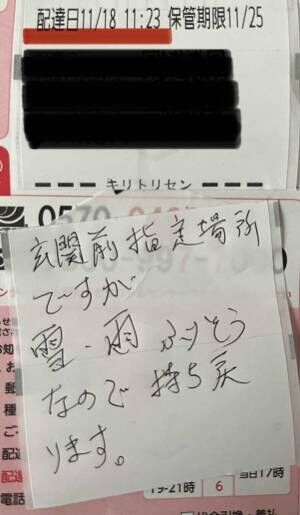 配達日11/18 11:23 保管期限11/25
キリトリセン
0570
玄関前指定場所
ですが
雪・雨ふりそう
なので持ち戻
ります。
19-21時 6 当日17時